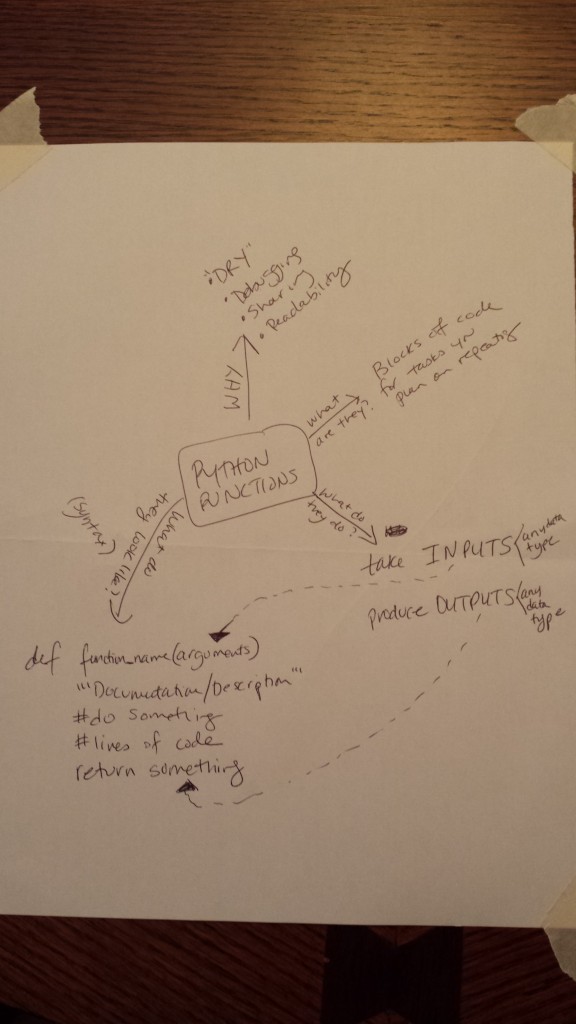 "DRY"
• Debugging
• Sharing
• Readability
WHY
what
are they?
Blocks of code
for tasks you
plan on repeating
PYTHON
FUNCTIONS
What do
they do?
take INPUTS
any data
type
produce OUTPUTS
any
data
type
What do
they look like?
(Syntax)
def function_name(arguments)
"""Documentation/Description"""
#do something
#lines of code
return something